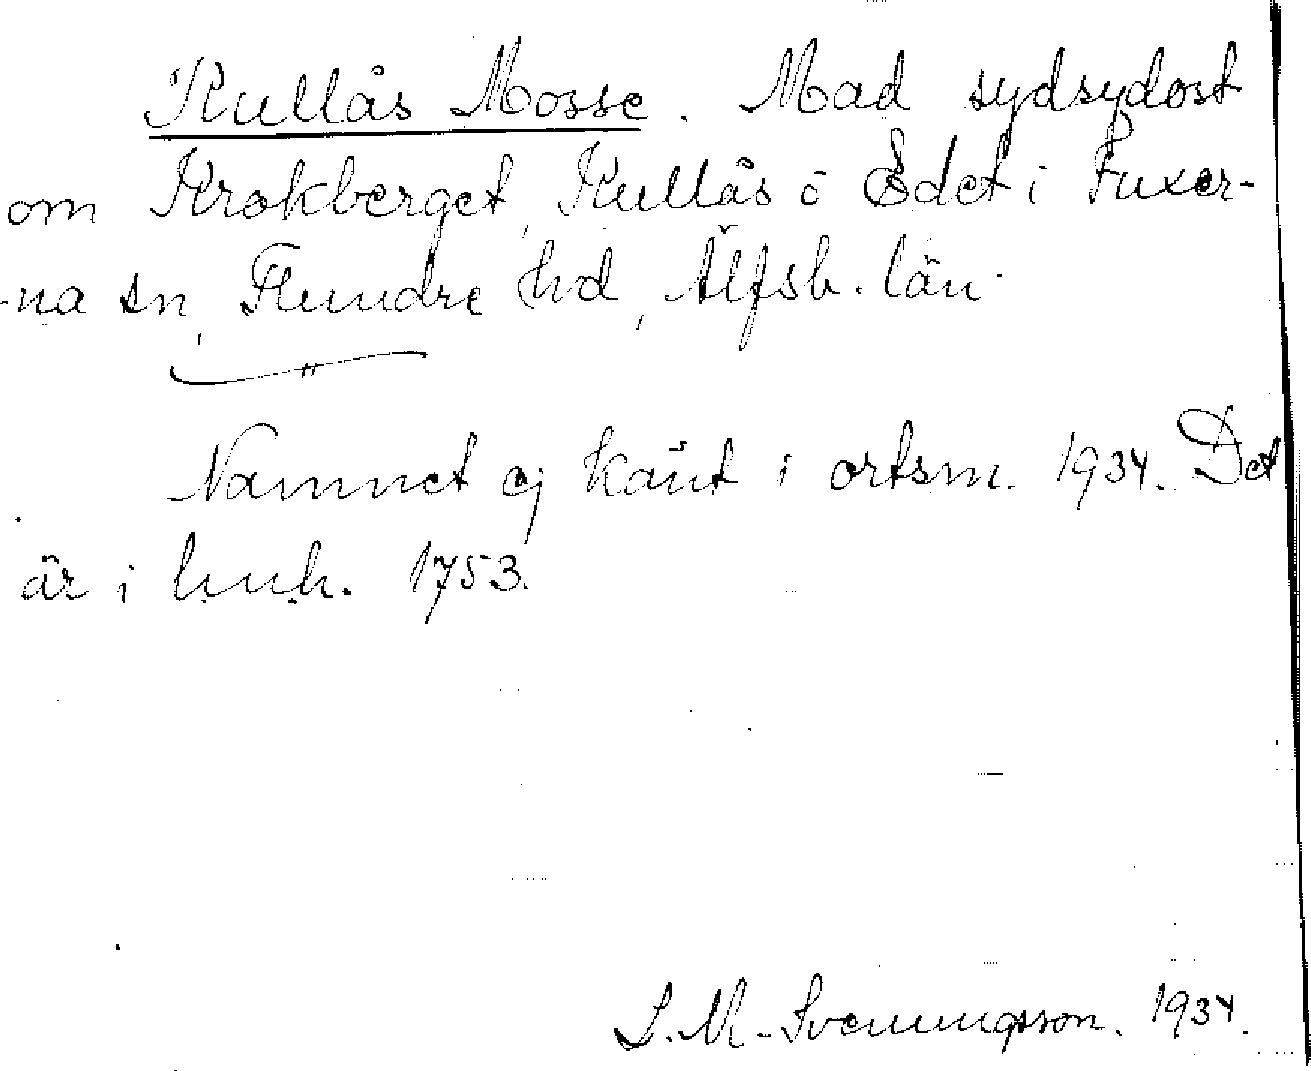 Kullås Mosse. Mad sydsydost
om Krokberget, Kullås ö Edet i Fuxer-
-na sn, Flundre hd, Älfsb. län.
Namnet ej känt i ortsm. 1934. Det
är i huh. 1753.
S. M. Svenningsson. 1934.